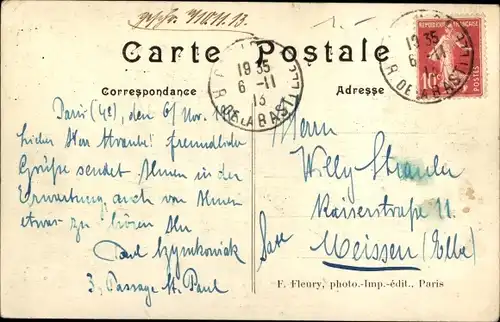 1.-
Carte Postale
Correspondance
Adresse
19 35
6 -11
13
R. DE LA BASTILLE
19 35
6 -11
R. DE LA BASTILLE
REPUBLIQUE FRANÇAISE
10c
POSTES
Paris (4e), den 6/ Nov.
Lieber Herr Strauder! freundliche
Grüße sendet Ihnen in der
Erwartung, auch von Ihnen
etwas zu hören Ihr
Paul Szymkowiak
3, Passage St. Paul
Herrn
Willy Strauder
Kaiserstraße 11
Meissen (Elbe)
F. Fleury, photo.-Imp.-édit., Paris